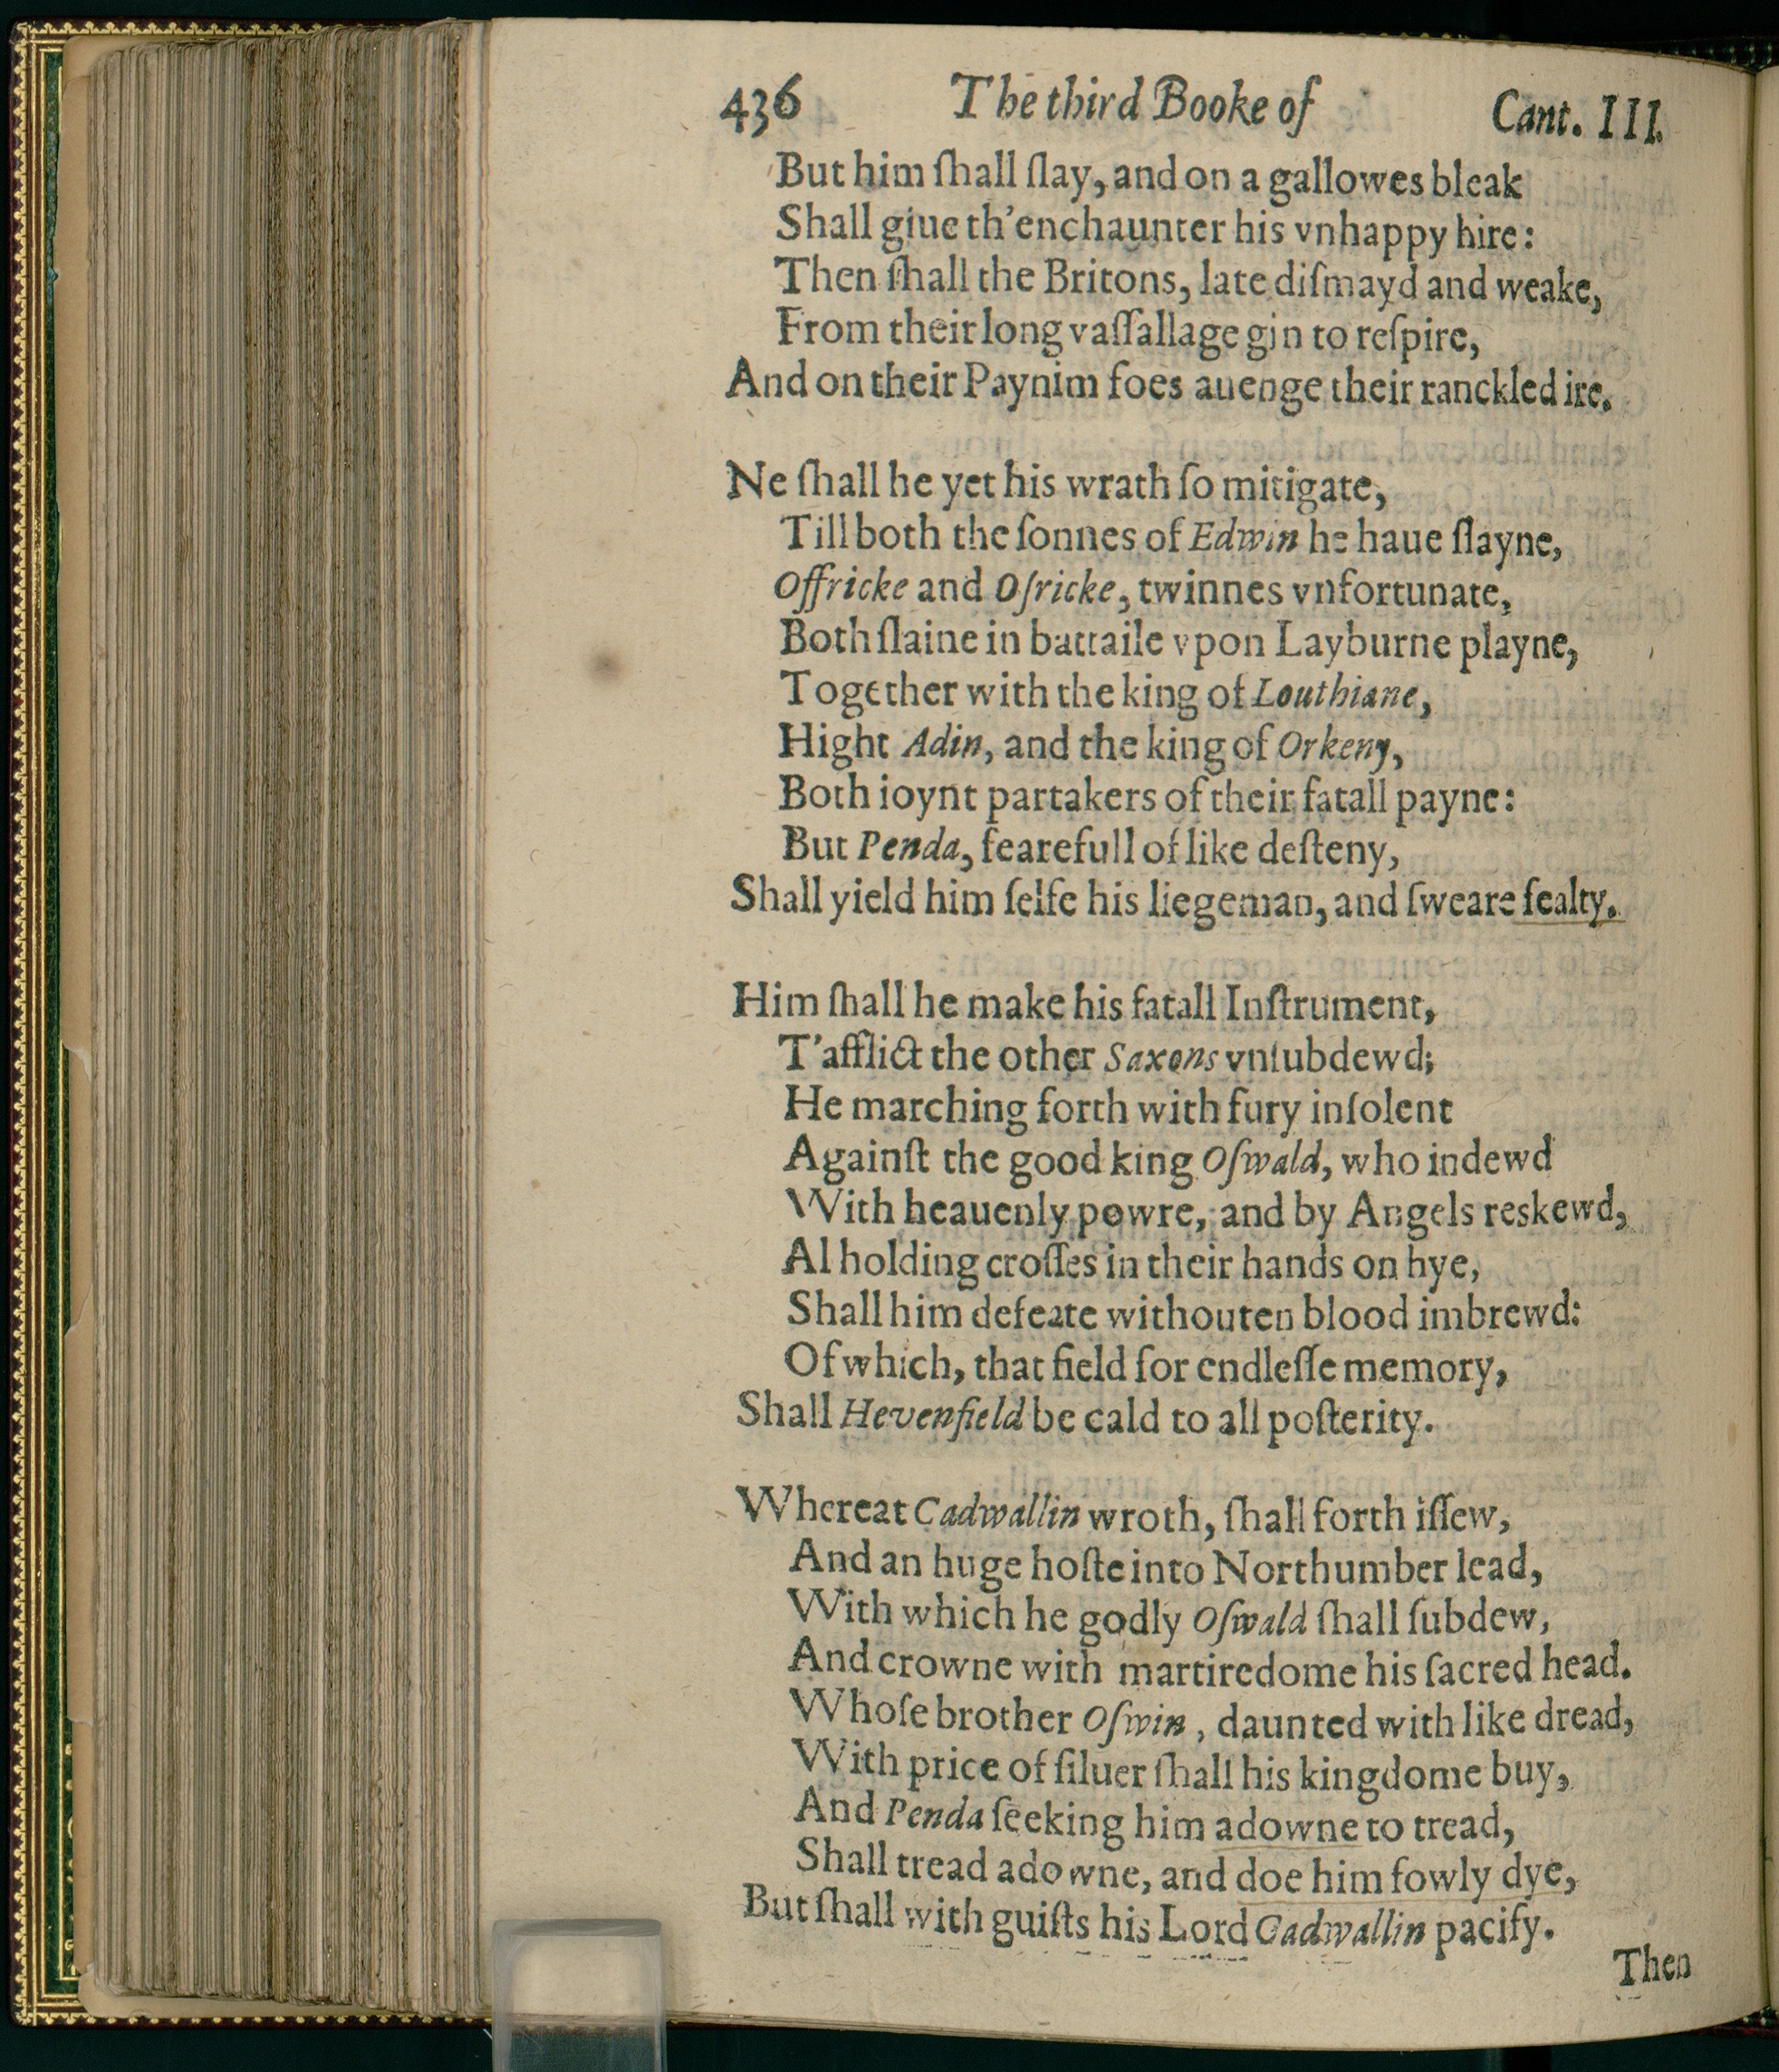 436 The third Booke of Cant. III.
But him ſhall ſlay, and on a gallowes bleak
Shall giue th'enchaunter his vnhappy hire:
Then ſhall the Britons, late diſmayd and weake,
From their long vaſſallage gin to reſpire,
And on their Paynim foes auenge their ranckled ire.
Ne ſhall he yet his wrath ſo mitigate,
Till both the ſonnes of Edwin he haue ſlayne,
Offricke and Oſricke, twinnes vnfortunate,
Both ſlaine in battaile vpon Layburne playne,
Together with the king of Louthiane,
Hight Adin, and the king of Orkeny,
Both ioynt partakers of their fatall payne:
But Penda, fearefull of like deſteny,
Shall yield him ſelfe his liegeman, and ſweare fealty.
Him ſhall he make his fatall Inſtrument,
T'afflict the other Saxons vnſubdewd;
He marching forth with fury inſolent
Againſt the good king Oſwald, who indewd
With heauenly powre, and by Angels reskewd,
Al holding croſſes in their hands on hye,
Shall him defeate withouten blood imbrewd:
Of which, that field for endleſſe memory,
Shall Hevenfield be cald to all poſterity.
Whereat Cadwallin wroth, ſhall forth iſſew,
And an huge hoſte into Northumber lead,
With which he godly Oſwald ſhall ſubdew,
And crowne with martiredome his ſacred head.
Whoſe brother Oſwin, daunted with like dread,
With price of ſiluer ſhall his kingdome buy,
And Penda ſeeking him adowne to tread,
Shall tread adowne, and doe him fowly dye,
But ſhall with guifts his Lord Cadwallin pacify.
Then